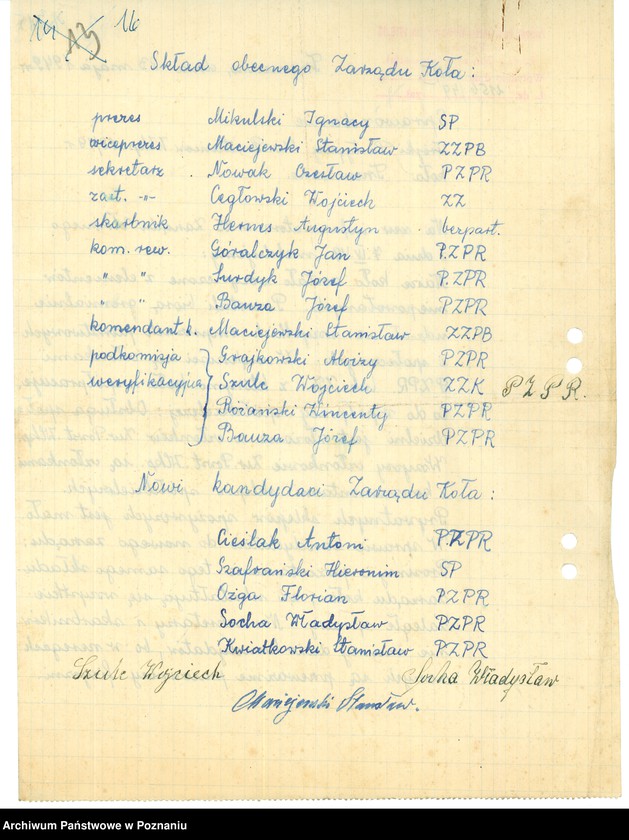 14 13 16
Skład obecnego Zarządu Koła:
prezes Mikulski Ignacy SP
wiceprezes Maciejewski Stanisław ZZPB
sekretarz . Nowak Czesław PZPR
zast. -"- Cegłowski Wojciech ZZ
skarbnik Hermes Augustyn . bezpart.
kom. rew. Góralczyk Jan P.ZPR
" " Surdyk Józef P.ZPR
" " Bauza Józef PZPR
komendant k. Maciejewski Stanisław ZZPB
podkomisja Grajkowski Aloizy PZPR
weryfikacyjna Szulc Wojciech ZZK PZPR.
Różański Wincenty PZPR
Bauza Józef PZPR
Nowi kandydaci Zarządu Koła:
Cieślak Antoni PZPR
Szafrański Hieronim SP
Ożga Florian PZPR
Socha Władysław PZPR
Kwiatkowski Stanisław PZPR
Szulc Wojciech Socha Władysław
Maciejewski Stanisław.
Archiwum Państwowe w Poznaniu